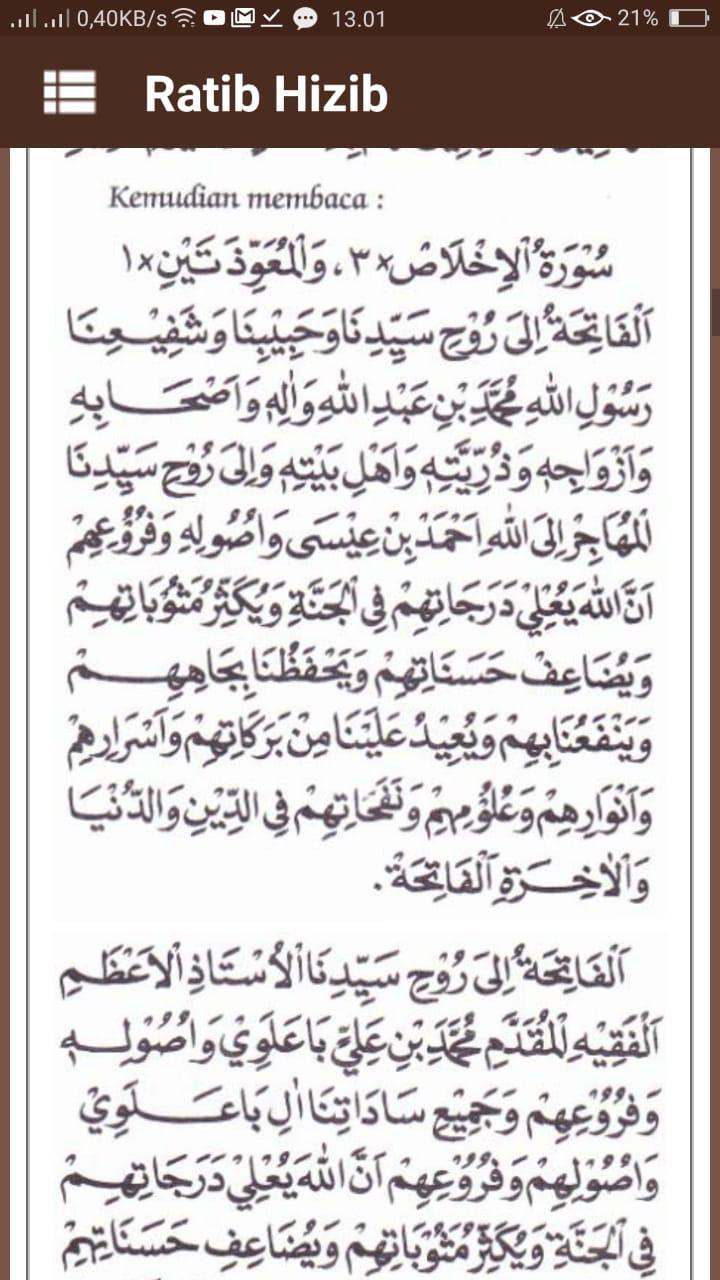 0,40KB/s 13.01 21%
Ratib Hizib
Kemudian membaca :
سُوْرَةُ الْاِخْلَاصْ ×٣، وَالْمُعَوِّذَتَيْنِ ×١
اَلْفَاتِحَةُ اِلَى رُوْحِ سَيِّدِنَا وَحَبِيْبِنَا وَشَفِيْعِنَا
رَسُوْلِ اللهِ مُحَمَّدِ بْنِ عَبْدِ اللهِ وَاٰلِهِ وَاَصْحَابِهِ
وَاَزْوَاجِهِ وَذُرِّيَّتِهِ وَاَهْلِ بَيْتِهِ وَاِلَى رُوْحِ سَيِّدِنَا
الْمُهَاجِرْ اِلَى اللهِ اَحْمَدْ بِنْ عِيْسَى وَاُصُوْلِهِ وَفُرُوْعِهِمْ
اَنَّ اللهَ يَعْلِيْ دَرَجَاتِهِمْ فِي الْجَنَّةِ وَيُكَثِّرُ مَثُوْبَاتِهِمْ
وَيُضَاعِفْ حَسَنَاتِهِمْ وَيَحْفَظُنَا بِجَاهِهِمْ
وَيَنْفَعُنَا بِهِمْ وَيُعِيْدُ عَلَيْنَا مِنْ بَرَكَاتِهِمْ وَاَسْرَارِهِمْ
وَاَنْوَارِهِمْ وَعُلُوْمِهِمْ وَنَفَحَاتِهِمْ فِي الدِّيْنِ وَالدُّنْيَا
وَالْاٰخِرَةِ اَلْفَاتِحَةْ.
اَلْفَاتِحَةُ اِلَى رُوْحِ سَيِّدِنَا الْاُسْتَاذِ الْاَعْظَمِ
اَلْفَقِيْهِ الْمُقَدَّمِ مُحَمَّدِ بْنِ عَلِيِّ بَاعَلَوِيْ وَاُصُوْلِهِ
وَفُرُوْعِهِمْ وَجَمِيْعِ سَادَاتِنَا اٰلِ بَاعَلَوِيْ
وَاُصُوْلِهِمْ وَفُرُوْعِهِمْ اَنَّ اللهَ يَعْلِيْ دَرَجَاتِهِمْ
فِي الْجَنَّةِ وَيُكَثِّرُ مَثُوْبَاتِهِمْ وَيُضَاعِفِ حَسَنَاتِهِمْ